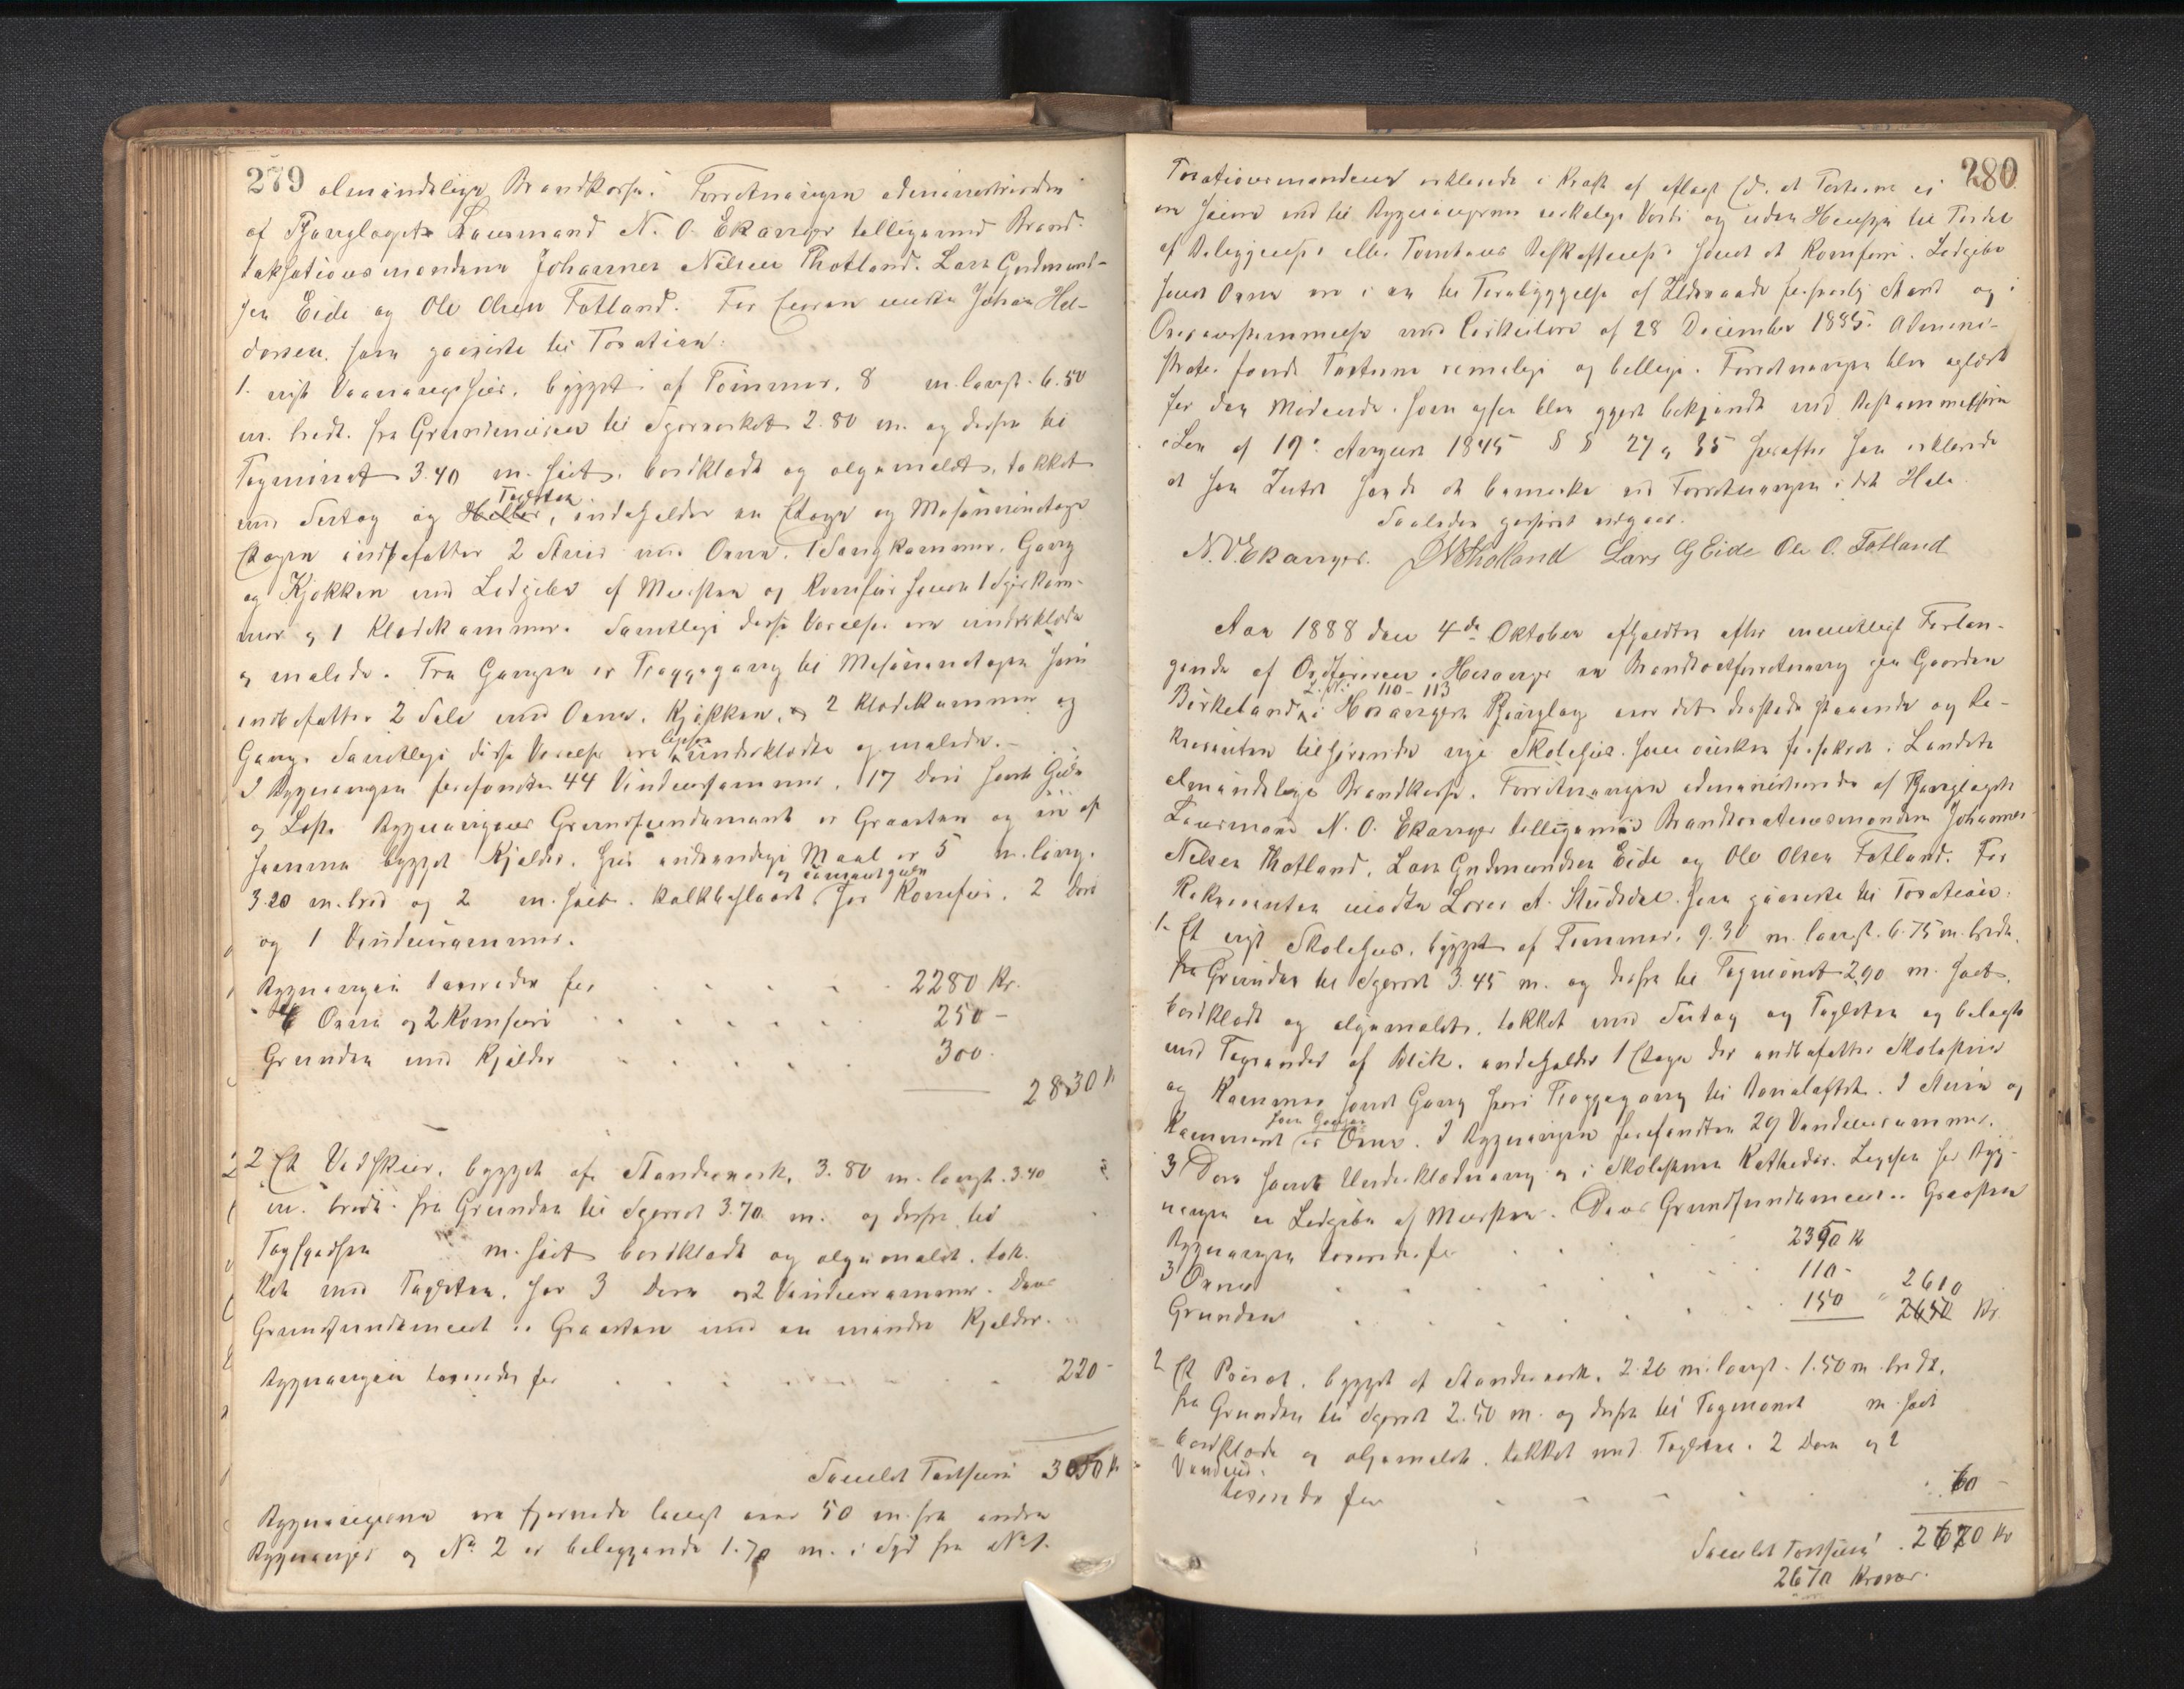 279 almindelige Brandkasse. Forretningen administreredes
af Thinglagets Lensmand N. O. Ekanger tilligemed Brand-
taksationsmændene Johannes Nilsen Thotland. Lars Gudmund-
sen Eide og Ole Olsen Fotland. For Eieren mødte Johan Hal-
dorsen. som paaviste til Taxation:
1. nyt Vaaningshus, bygget af Tømmer, 8 m. langt. 6.50
m. bredt. fra Grundmuren til Tagskjæget 2.80 m. og derfra til
Tagmønet 3.40 m. høit, bordklædt og oljemalet, tækket
med Suttag og Tagsten, indeholder en Etage og Mesaninetage
Etagen indbefatter 2 Stuer med Ovne. 1 Sengkammer. Gang
og Kjøkken med Ledpibe af Mursten og Komfur samt 1 Spiskam-
mer og 1 Klædekammer. Samtlige disse Værelser ere underklædte
og malede. Fra Gangen er Trappegang til Mesaninetagen som
indbefatter 2 Sale med Ovne. Kjøkken, 2 Klædekammere og
Gang. Samtlige disse Værelser ere ligesaa underklædte og malede.-
I Bygningen forefindes 44 Vinduesrammer, 17 Døre samt
og Bygningens Grundfundament er Graasten og under
samme bygget Kjelder, hvis indvendige Maal er 5 m. lang.
3.20 m. bred og 2 m. høi. kalkbeslaaet har Komfur. 2 Døre
og 1 Vinduesramme.
Bygningen taxeredes for 2280 Kr.
4 Ovne og 2 Komfurer 250 -
Grunden med Kjelder 300.
2830 K
2 Et Vedskur, bygget af Standerværk, 3.80 m. langt. 3.40
m. bredt. fra Grunden til Skjægget 3.70 m. og derfra til
m. høit bordklædt og oljemalet. tæk-
ket med Tagsten, har 3 Døre og 2 Vinduesrammer. Dens
Grundfundament er Graasten med en mindre Kjelder.
Bygningen taxeredes for 220 -
Samlet Taxtsum 3050 K
Bygningerne ere fjernede langt over 50 m. fra andre
Bygninger og No 2 er beliggende 1.70 m. i Syd fra No 1.
280
Taxationsmændene erklærede i Kraft af aflagt Ed, at Taxterne ei
ere høiere end til Bygningernes virkelige Værdi og uden Hensyn til Fordel
af Beliggenhed eller Tomtens Beskaffenhed samt at Komfur. Ledpibe
samt Ovne ere i en til Forebyggelse af Ildsvaade forsvarlig Stand og i
Overensstemmelse med Cirkulære af 28 December 1885. Admini-
strator fandt Taxterne rimelige og billige. Forretningen blev oplæst
for den Mødende. som ogsaa blev gjort bekjendt med Bestemmelserne
i Lov af 19de August 1845 § § 27 og 35 hvorefter han erklærede
at han Intet havde at bemærke ved Forretningen i det Hele.
Saaledes passeret udgaar.
N. O. Ekanger. JNThotland Lars G Eide Ole O. Fotland
Aar 1888 den 4de Oktober afholdtes efter mundtligt Forlan-
gende af Ordføreren i Hosanger en Brandtaxtforretning paa Gaarden
L. N. 110-113
Birkeland i Hosangers Thinglag over det dersteds staaende og Re-
kvirenten tilhørende nye Skolehus. som ønskes forsikret i Landets
almindelige Brandkasse. Forretningen administreredes af Thinglagets
Lensmand N. O. Ekanger tilligemed Brandtaxationsmændene Johannes
Nilsen Thotland, Lars Gudmundsen Eide og Ole Olsen Fotland. For
Rekvirenten mødte Lærer A. som paaviste til Taxation:
1. Et nyt Skolehus, bygget af Tømmer, 9.30 m. langt. 6.75 m. bredt.
fra Grunden til Skjægget 3.45 m. og derfra til Tagmønet 2.90 m. høit,
bordklædt og oljemalet, tækket med Suttag og Tagsten og belagt
med Tagrender af Blik. indeholder 1 Etage der indbefatter Skolestue
og Kammer samt Gang hvori Trappegang til Bonaloftet. I Stuen og
Kammeret samt Gangen er Ovne. I Bygningen forefindes 29 Vinduesrammer.
3 Døre samt Underklædning og i Skolestuen Katheder. Ligesaa for Byg-
ningen er Ledpibe af Mursten. Dens Grundfundament er Graasten
Bygningen taxeredes for 2350 K
3 Ovne 110 - 2610
Grunden 150 2650 Kr
2 Et Privet, bygget af Standerværk, 2.20 m. langt. 1.50 m. bredt,
fra Grunden til Skjægget 2.50 m. og derfra til Tagmønet m. høit
bordklædt og oljemalet. tækket med Tagsten. 2 Døre og 2
Vinduer.
taxeredes for 60 -
Samlet Taxtsum 2670 Kr
2670 Kroner.